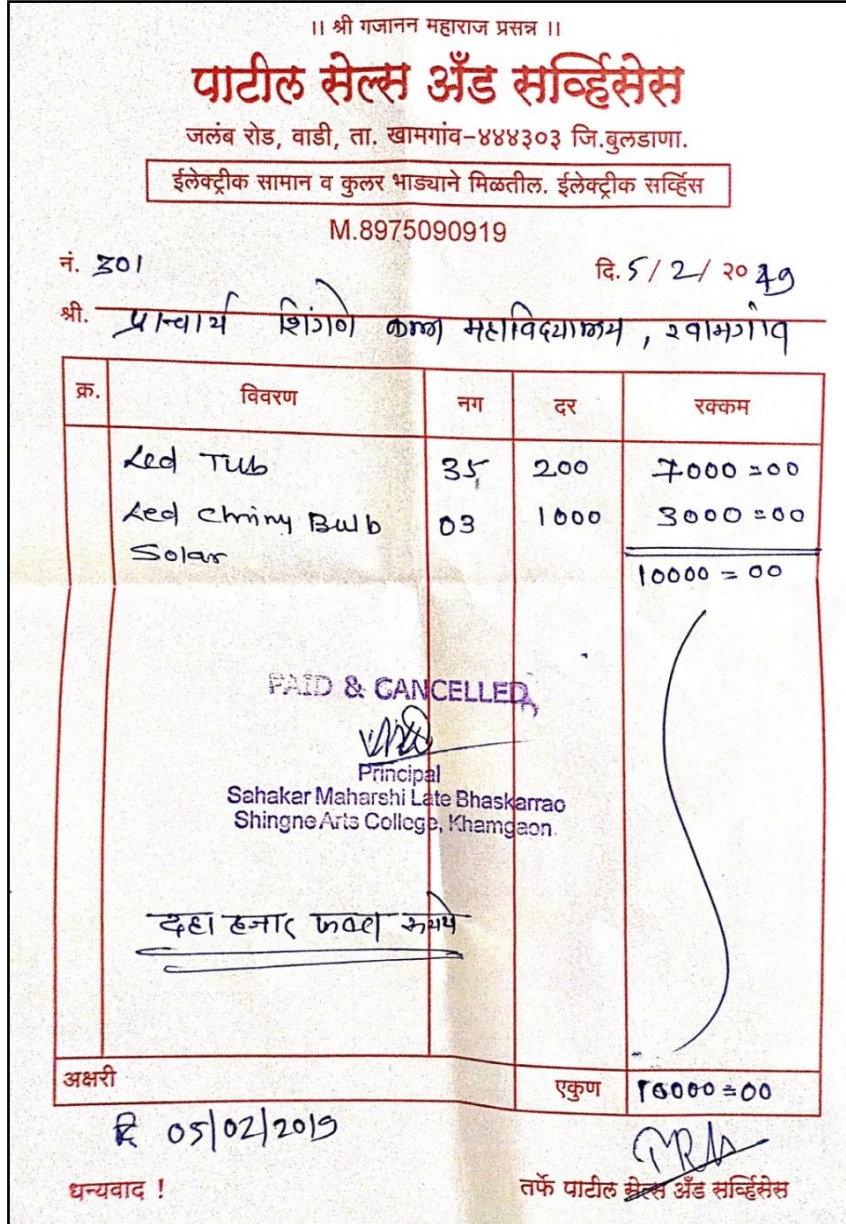 ।। श्री गजानन महाराज प्रसन्न ।।
पाटील सेल्स अँड सर्व्हिसेस
जलंब रोड, वाडी, ता. खामगांव-४४४३०३ जि.बुलडाणा.
ईलेक्ट्रीक सामान व कुलर भाड्याने मिळतील. ईलेक्ट्रीक सर्व्हिस
M.8975090919
नं. 301 दि. 5/2/२०19
श्री. प्राचार्य शिंगणे कला महाविद्यालय, खामगांव
क्र. विवरण नग दर रक्कम
Led Tub 35 200 7000=00
Led Bulb 03 1000 3000=00
Solar
10000=00
PAID & CANCELLED
Principal
Sahakar Maharshi Late Bhaskarrao
Shingne Arts College, Khamgaon.
दहा हजार फक्त रुपये
अक्षरी एकुण 10000=00
दि 05/02/2019
धन्यवाद ! तर्फे पाटील सेल्स अँड सर्व्हिसेस